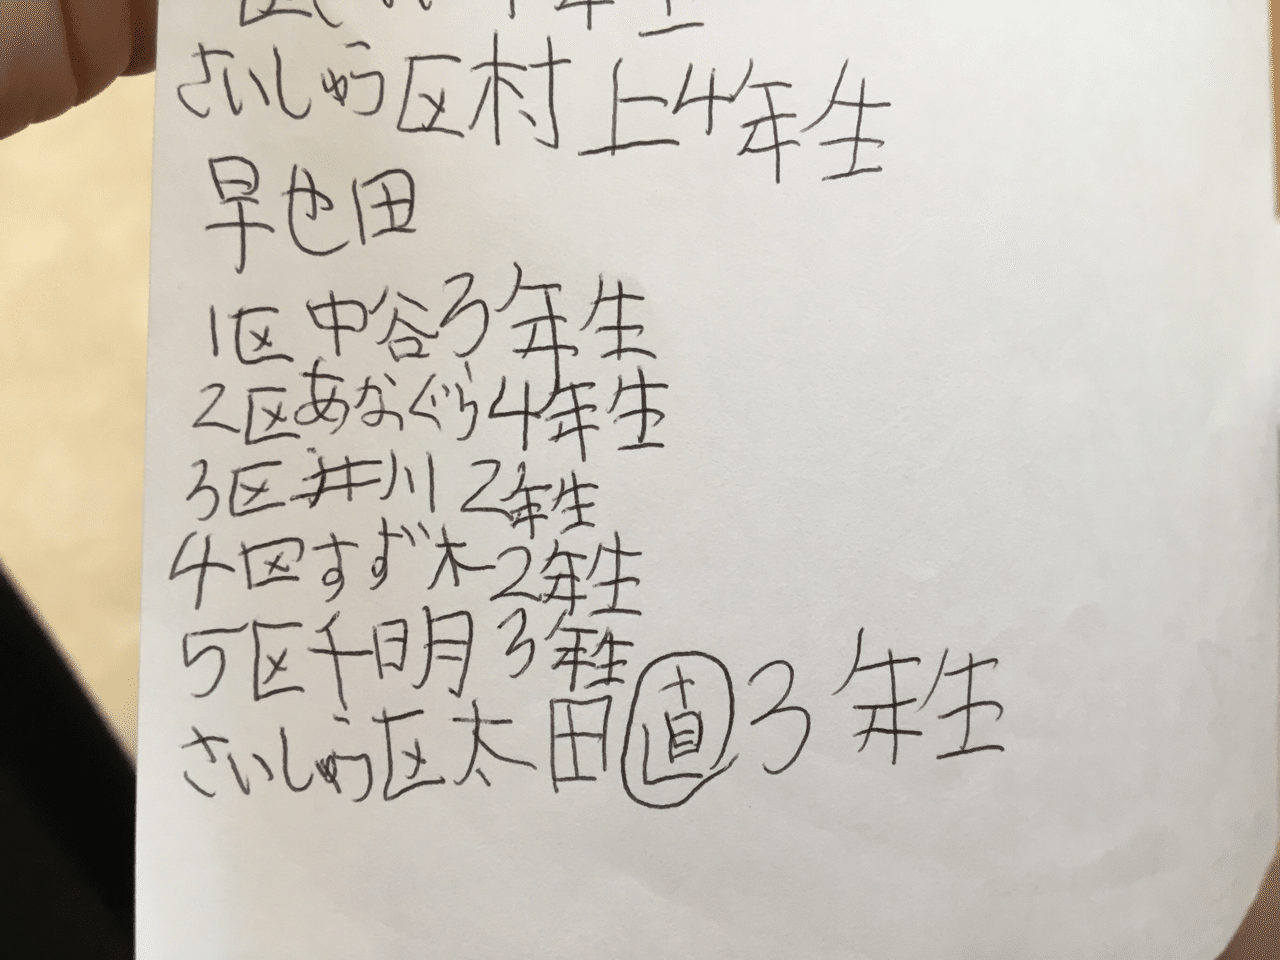 さいしゅう区村上4年生
早也田
1区中谷3年生
2区あなぐら4年生
3区井川2年生
4区すず木2年生
5区千明3年生
さいしゅう区太田直3年生